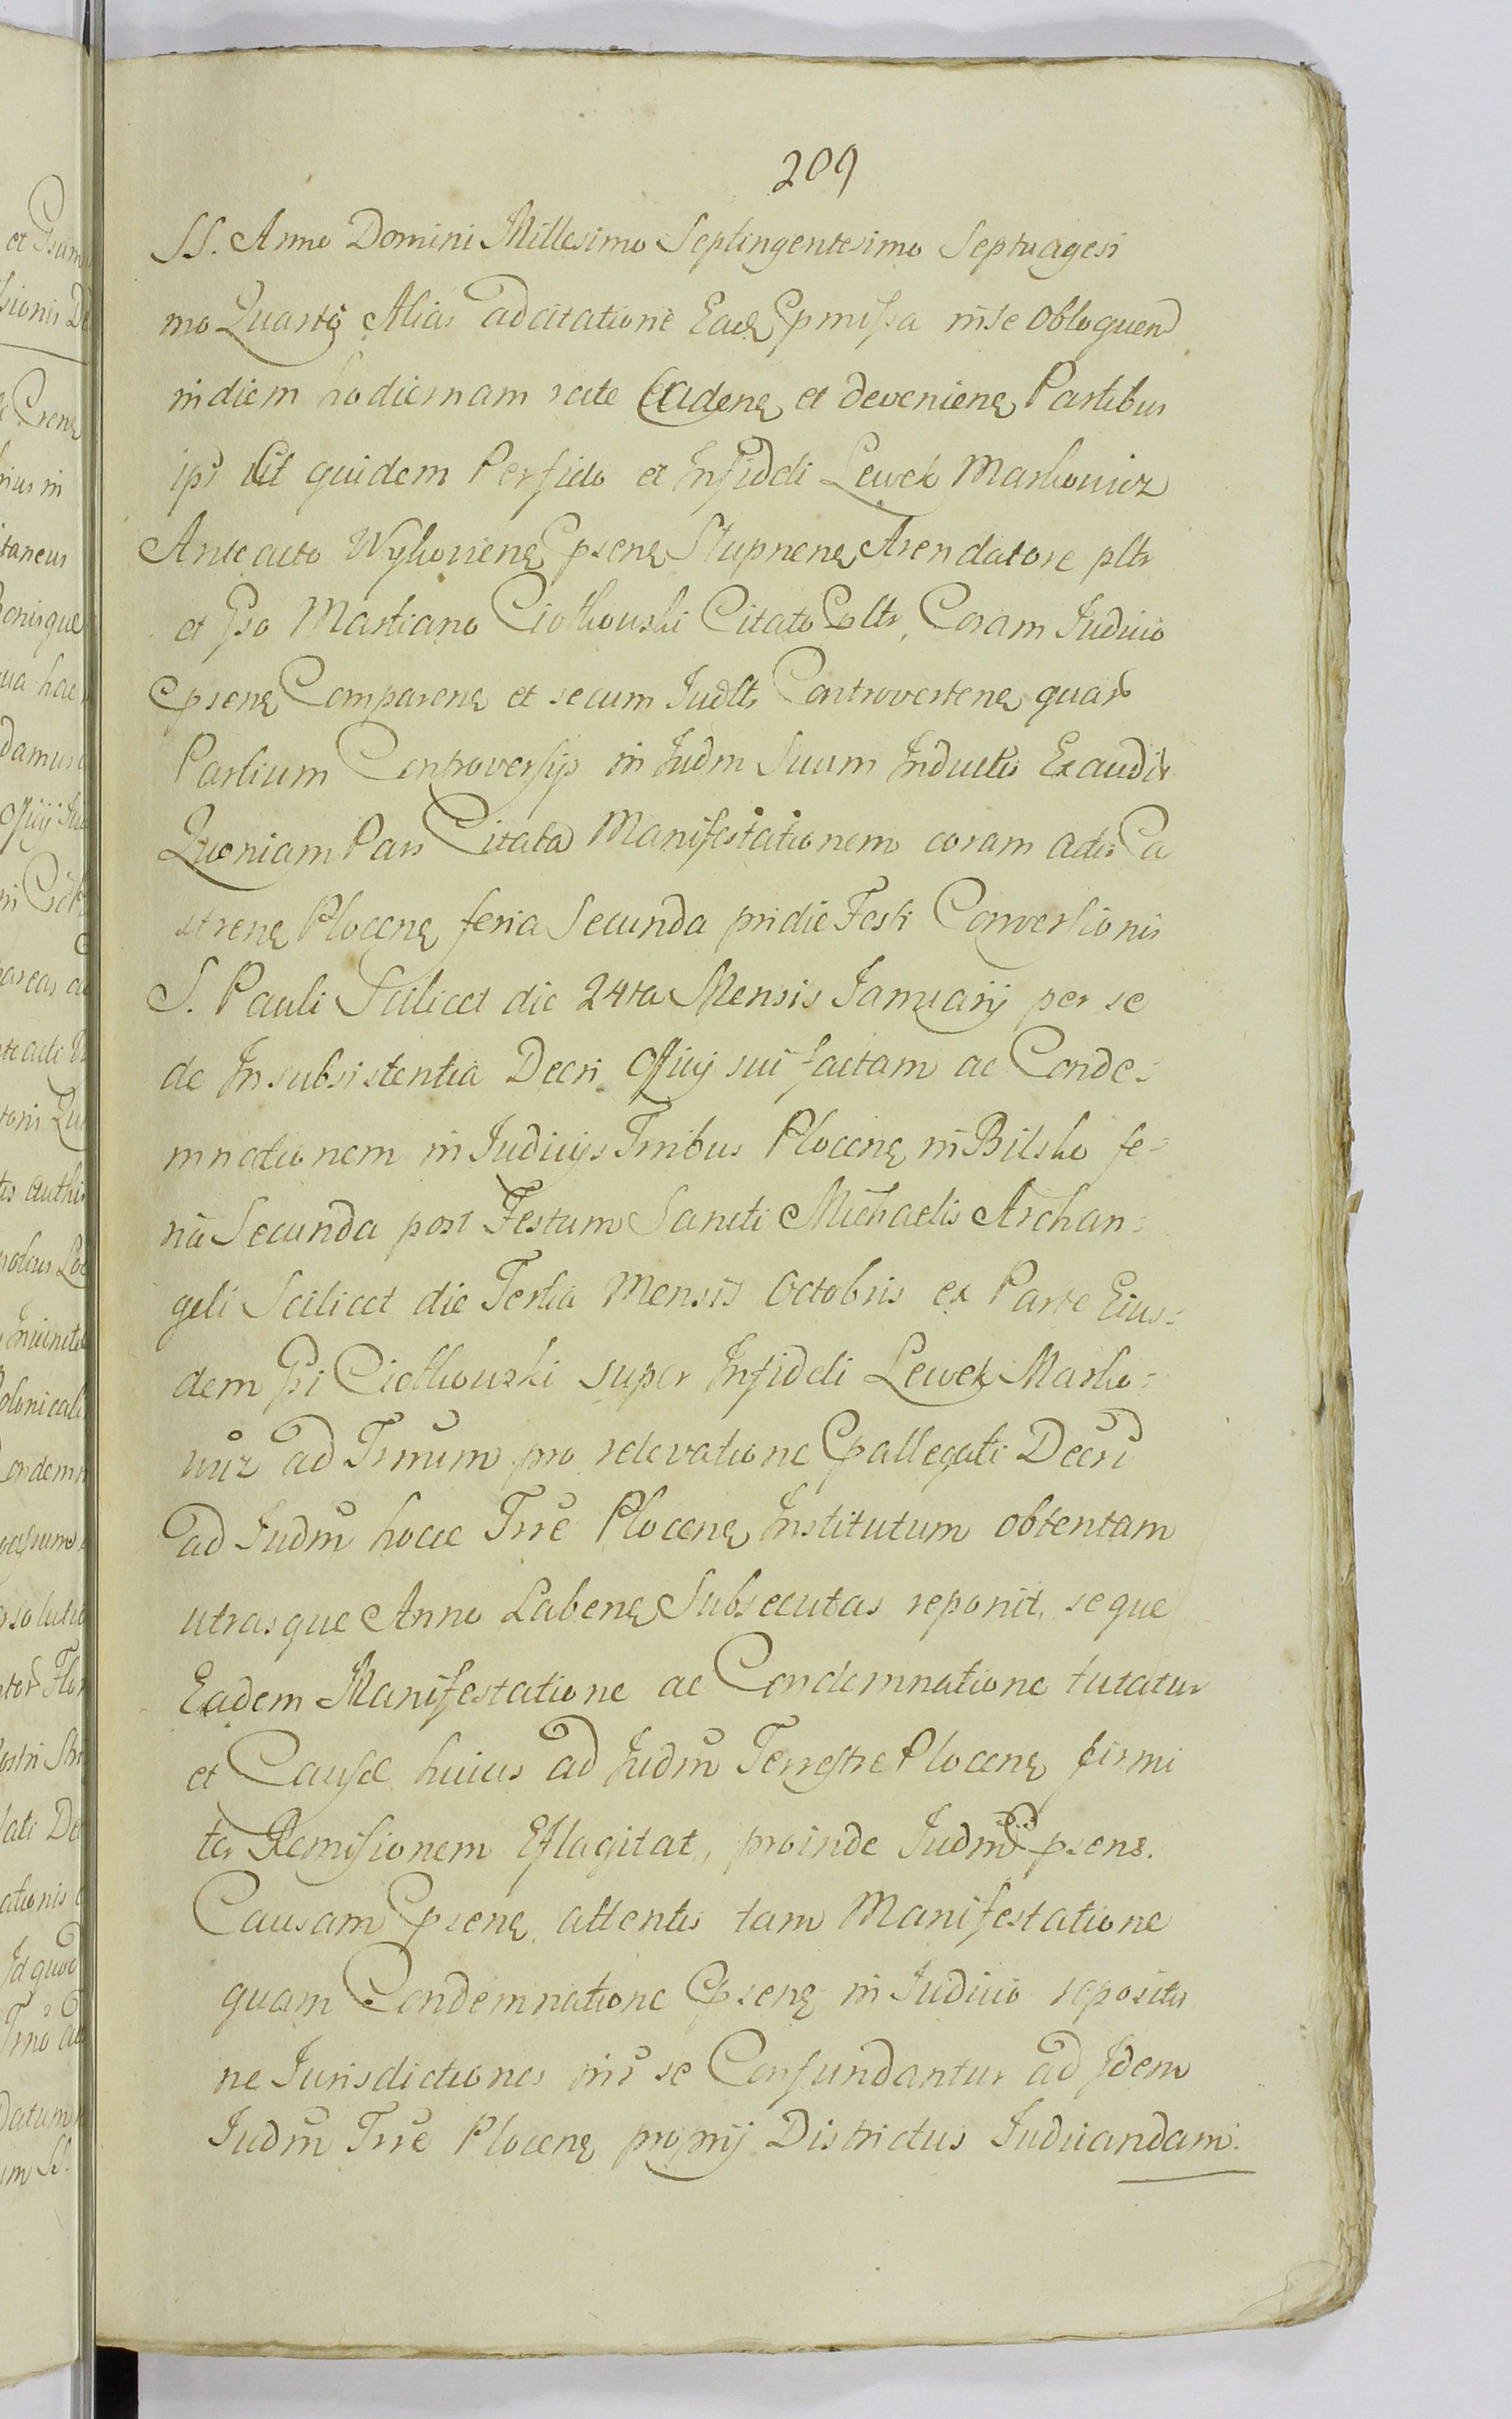 209
SS. Anno Domini Millesimo Septingentesimo Septuagesi
mo Quarto Alias ad citatione Eade pmissa inse obloquen
in diem hodiernam rite Cadenę et deveniene Partibus
ips et quidem Perfido et Infideli Lewek Markowicz
Anteacto Wykowienę psenę Stupnenę Arendatore pltr
et Gso Martiano Ciołkowski Citato pltr, Coram Judicio
psenę Comparenę et secum Judltr Controvertenę quar
Partium Controversijs in Judm Suum Inductis Exaudit
Quoniam Pars Citata Manifestationem coram actis Ca
strenę Plocenę feria Secunda pridie Festi Conversionis
S. Pauli Scilicet die 24ta Mensis Januarij per se
de Insubsistentia Decri Officij sui factam ac Conde=
mnationem in Judicijs Trribus Plocenę in Bilsko fe=
ria Secunda post Festum Sancti Michaelis Archan=
geli Scilicet die Tertia Mensis Octobris ex Parte Eius=
dem Gsi Ciołkowski super Infideli Lewek Marko=
wicz ad Trrum pro relevatione pallegati Decri
ad Judm hocce Trre Plocenę Institutum obtentam
utrasque Anno Labenę Subsecutas reponit, seque
Eadem Manifestatione ac Condemnatione tutatur
et Causæ huius ad Judm Terrestre Plocenę firmi
ter Remisionem Efflagitat, proinde Judm psens.
Causam psenę attentis tam Manifestatione
quam Condemnatione psenę in Judicio repositis
ne Jurisdictiones inr se Confundantur ad Idem
Judm Trre Plocenę proprij Districtus Judicandam.